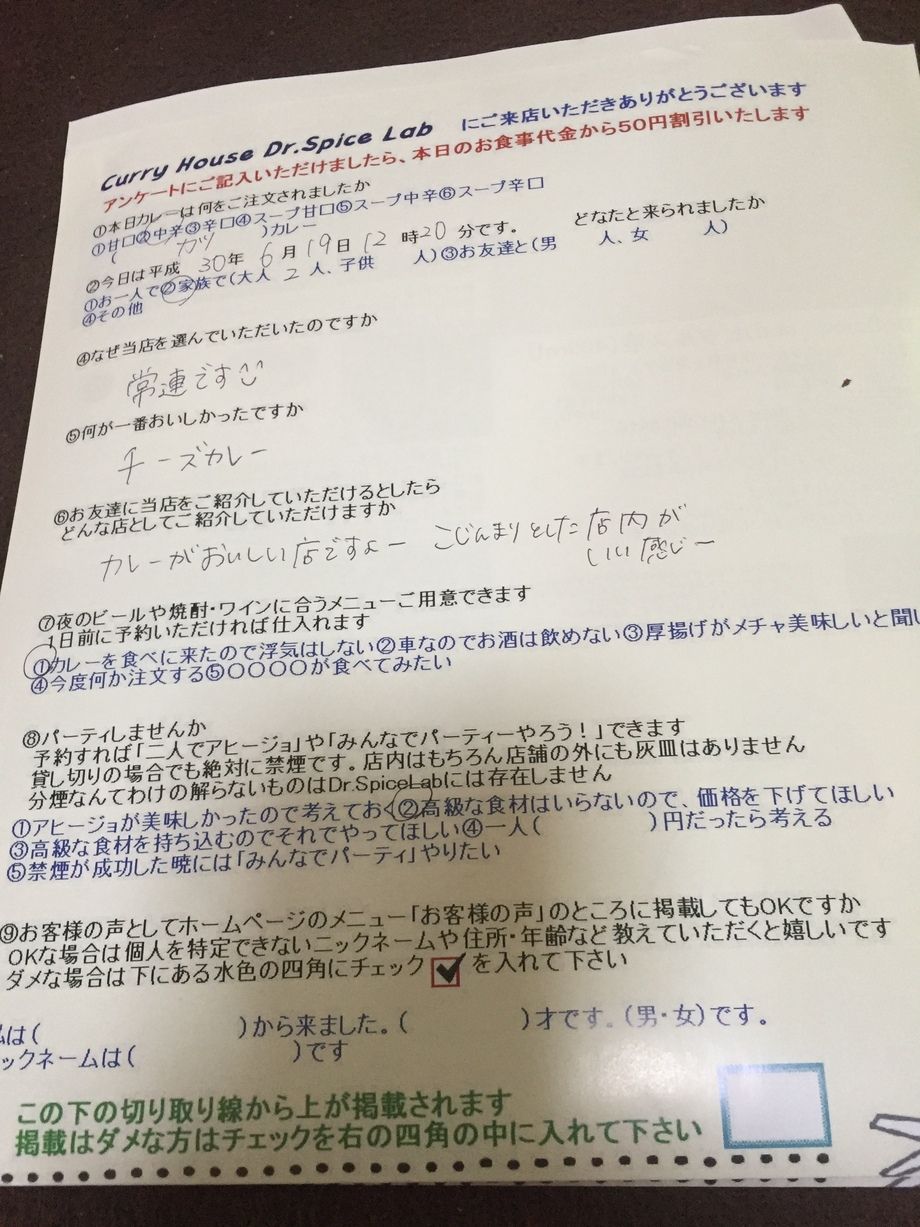 Curry House Dr.Spice Lab にご来店いただきありがとうございます
アンケートにご記入いただけましたら、本日のお食事代金から50円割引いたします
①本日カレーは何をご注文されましたか
①甘口②中辛③辛口④スープ甘口⑤スープ中辛⑥スープ辛口
( カツ )カレー
②今日は平成 30年 6月 19日 12時20分です。 どなたと来られましたか
①お一人で②家族で(大人 2 人、子供 人)③お友達と(男 人、女 人)
④その他
④なぜ当店を選んでいただいたのですか
常連です
⑤何が一番おいしかったですか
チーズカレー
⑥お友達に当店をご紹介していただけるとしたら
どんな店としてご紹介していただけますか
カレーがおいしい店ですよー こじんまりとした店内が
いい感じー
⑦夜のビールや焼酎・ワインに合うメニューご用意できます
1日前に予約いただければ仕入れます
①カレーを食べに来たので浮気はしない②車なのでお酒は飲めない③厚揚げがメチャ美味しいと聞い
④今度何か注文する⑤〇〇〇〇が食べてみたい
⑧パーティしませんか
予約すれば「二人でアヒージョ」や「みんなでパーティーやろう!」できます
貸し切りの場合でも絶対に禁煙です。店内はもちろん店舗の外にも灰皿はありません
分煙なんてわけの解らないものはDr.SpiceLabには存在しません
①アヒージョが美味しかったので考えておく②高級な食材はいらないので、価格を下げてほしい
③高級な食材を持ち込むのでそれでやってほしい④一人( )円だったら考える
⑤禁煙が成功した暁には「みんなでパーティ」やりたい
⑨お客様の声としてホームページのメニュー「お客様の声」のところに掲載してもOKですか
OKな場合は個人を特定できないニックネームや住所・年齢など教えていただくと嬉しいです
ダメな場合は下にある水色の四角にチェック✔を入れて下さい
は( )から来ました。( )才です。(男・女)です。
ックネームは( )です
この下の切り取り線から上が掲載されます
掲載はダメな方はチェックを右の四角の中に入れて下さい